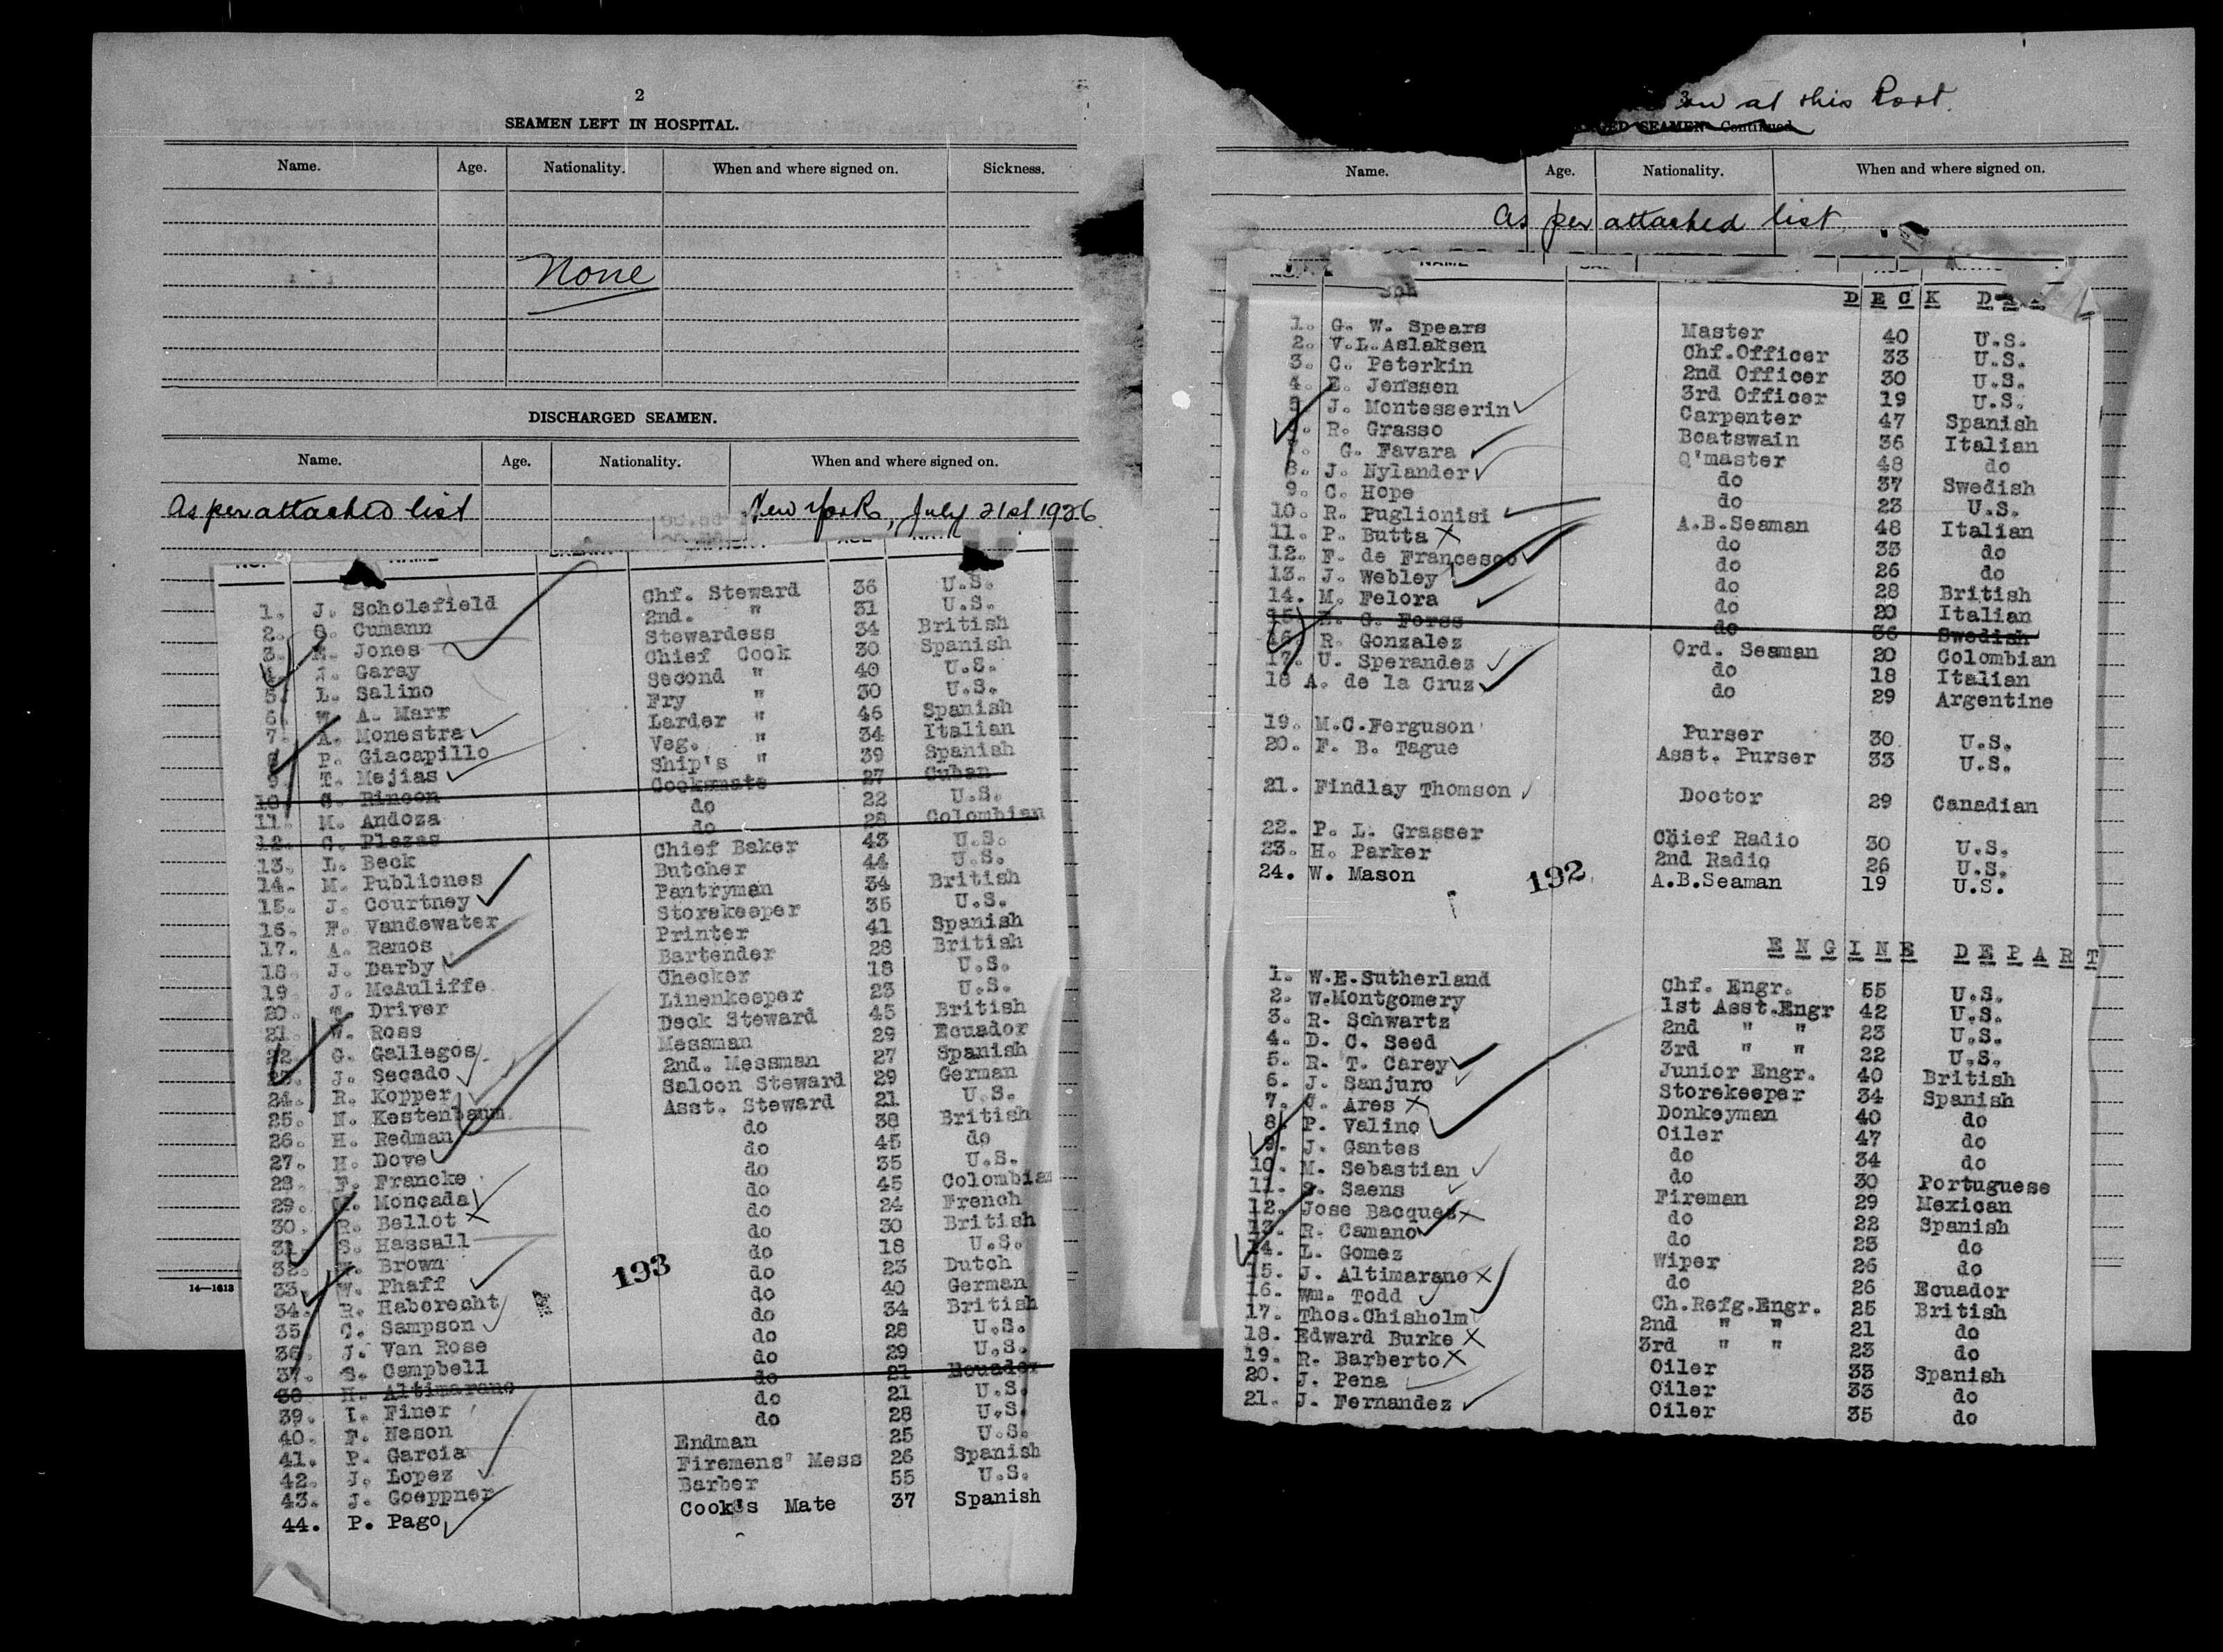 2
SEAMEN LEFT IN HOSPITAL.
Name. Age. Nationality. When and where signed on. Sickness.
None
DISCHARGED SEAMEN.
Name. Age. Nationality. When and where signed on.
As per attached list New York, July 21st 1926
NAME
1. J. Scholefield Chf. Steward 36 U.S.
2. G. Cumann 2nd. " 31 U.S.
3. Jones Stewardess 34 British
4. Garay Chief Cook 30 Spanish
5. L. Salino Second " 40 U.S.
6. W. A. Marr Fry " 30 U.S.
7. A. Monestra Larder " 46 Spanish
8. P. Giacapillo Veg. " 34 Italian
9. T. Mejias Ship's " 39 Spanish
10. Rincon Cooksmate 27 Cuban
11. M. Andoza do 22 U.S.
12. C. Plazas do 28 Colombian
13. L. Beck Chief Baker 43 U.S.
14. M. Publiones Butcher 44 U.S.
15. J. Courtney Pantryman 34 British
16. F. Vandewater Storekeeper 35 U.S.
17. A. Ramos Printer 41 Spanish
18. J. Darby Bartender 28 British
19. J. McAuliffe Checker 18 U.S.
20. T. Driver Linenkeeper 23 U.S.
21. W. Ross Deck Steward 45 British
22. G. Gallegos Messman 29 Ecuador
23. J. Secado 2nd. Messman 27 Spanish
24. R. Kopper Saloon Steward 29 German
25. N. Kestenbaum Asst. Steward 21 U.S.
26. H. Redman do 38 British
27. H. Dove do 45 do
28. F. Francke do 35 U.S.
29. Moncada do 45 Colombian
30. R. Bellot do 24 French
31. S. Hassall do 30 British
32. Brown do 18 U.S.
33. W. Phaff do 23 Dutch
34. R. Haberecht do 40 German
35. C. Sampson do 34 British
36. J. Van Rose do 28 U.S.
37. S. Campbell do 29 U.S.
38 H. Altimarano do 21 Ecuador
39. I. Finer do 21 U.S.
40. F. Nason do 28 U.S.
41. P. Garcia Endman 25 U.S.
42. J. Lopez Firemens' Mess 26 Spanish
43. J. Goeppner Barber 55 U.S.
44. P. Pago Cook's Mate 37 Spanish
193
14—1613
3
on at this Port.
SEAMEN Continued
Name. Age. Nationality. When and where signed on.
As per attached list.
NO. NAME
DECK
1. G. W. Spears Master 40 U.S.
2. V.L.Aslaksen Chf.Officer 33 U.S.
3. C. Peterkin 2nd Officer 30 U.S.
4. E. Jenssen 3rd Officer 19 U.S.
5. J. Montesserin Carpenter 47 Spanish
6. R. Grasso Boatswain 36 Italian
7. G. Favara Q'master 48 do
8. J. Nylander do 37 Swedish
9. C. Hope do 23 U.S.
10. R. Puglionisi A.B.Seaman 48 Italian
11. P. Butta do 35 do
12. F. de Francesco do 26 do
13. J. Webley do 28 British
14. M. Felora do 20 Italian
15. E. G. Forss do 36 Swedish
16. R. Gonzalez Ord. Seaman 20 Colombian
17. U. Sperandez do 18 Italian
18 A. de la Cruz do 29 Argentine
19. M.C.Ferguson Purser 30 U.S.
20. F. B. Tague Asst. Purser 33 U.S.
21. Findlay Thomson Doctor 29 Canadian
22. P. L. Grasser Chief Radio 30 U.S.
23. H. Parker 2nd Radio 26 U.S.
24. W. Mason A.B.Seaman 19 U.S.
192
ENGINE DEPART
1. W.E.Sutherland Chf. Engr. 55 U.S.
2. W.Montgomery 1st Asst.Engr 42 U.S.
3. R. Schwartz 2nd " " 23 U.S.
4. D. C. Seed 3rd " " 22 U.S.
5. R. T. Carey Junior Engr. 40 British
6. J. Sanjuro Storekeeper 34 Spanish
7. Ares Donkeyman 40 do
8. P. Valino Oiler 47 do
9. J. Gantes do 34 do
10. M. Sebastian do 30 Portuguese
11. S. Saens Fireman 29 Mexican
12. Jose Bacques do 22 Spanish
13. R. Camano do 23 do
14. L. Gomez Wiper 26 do
15. J. Altimarano do 26 Ecuador
16. Wm. Todd Ch.Refg.Engr. 25 British
17. Thos.Chisholm 2nd " " 21 do
18. Edward Burke 3rd " " 23 do
19. R. Barberto Oiler 33 Spanish
20. J. Pena Oiler 33 do
21. J. Fernandez Oiler 35 do